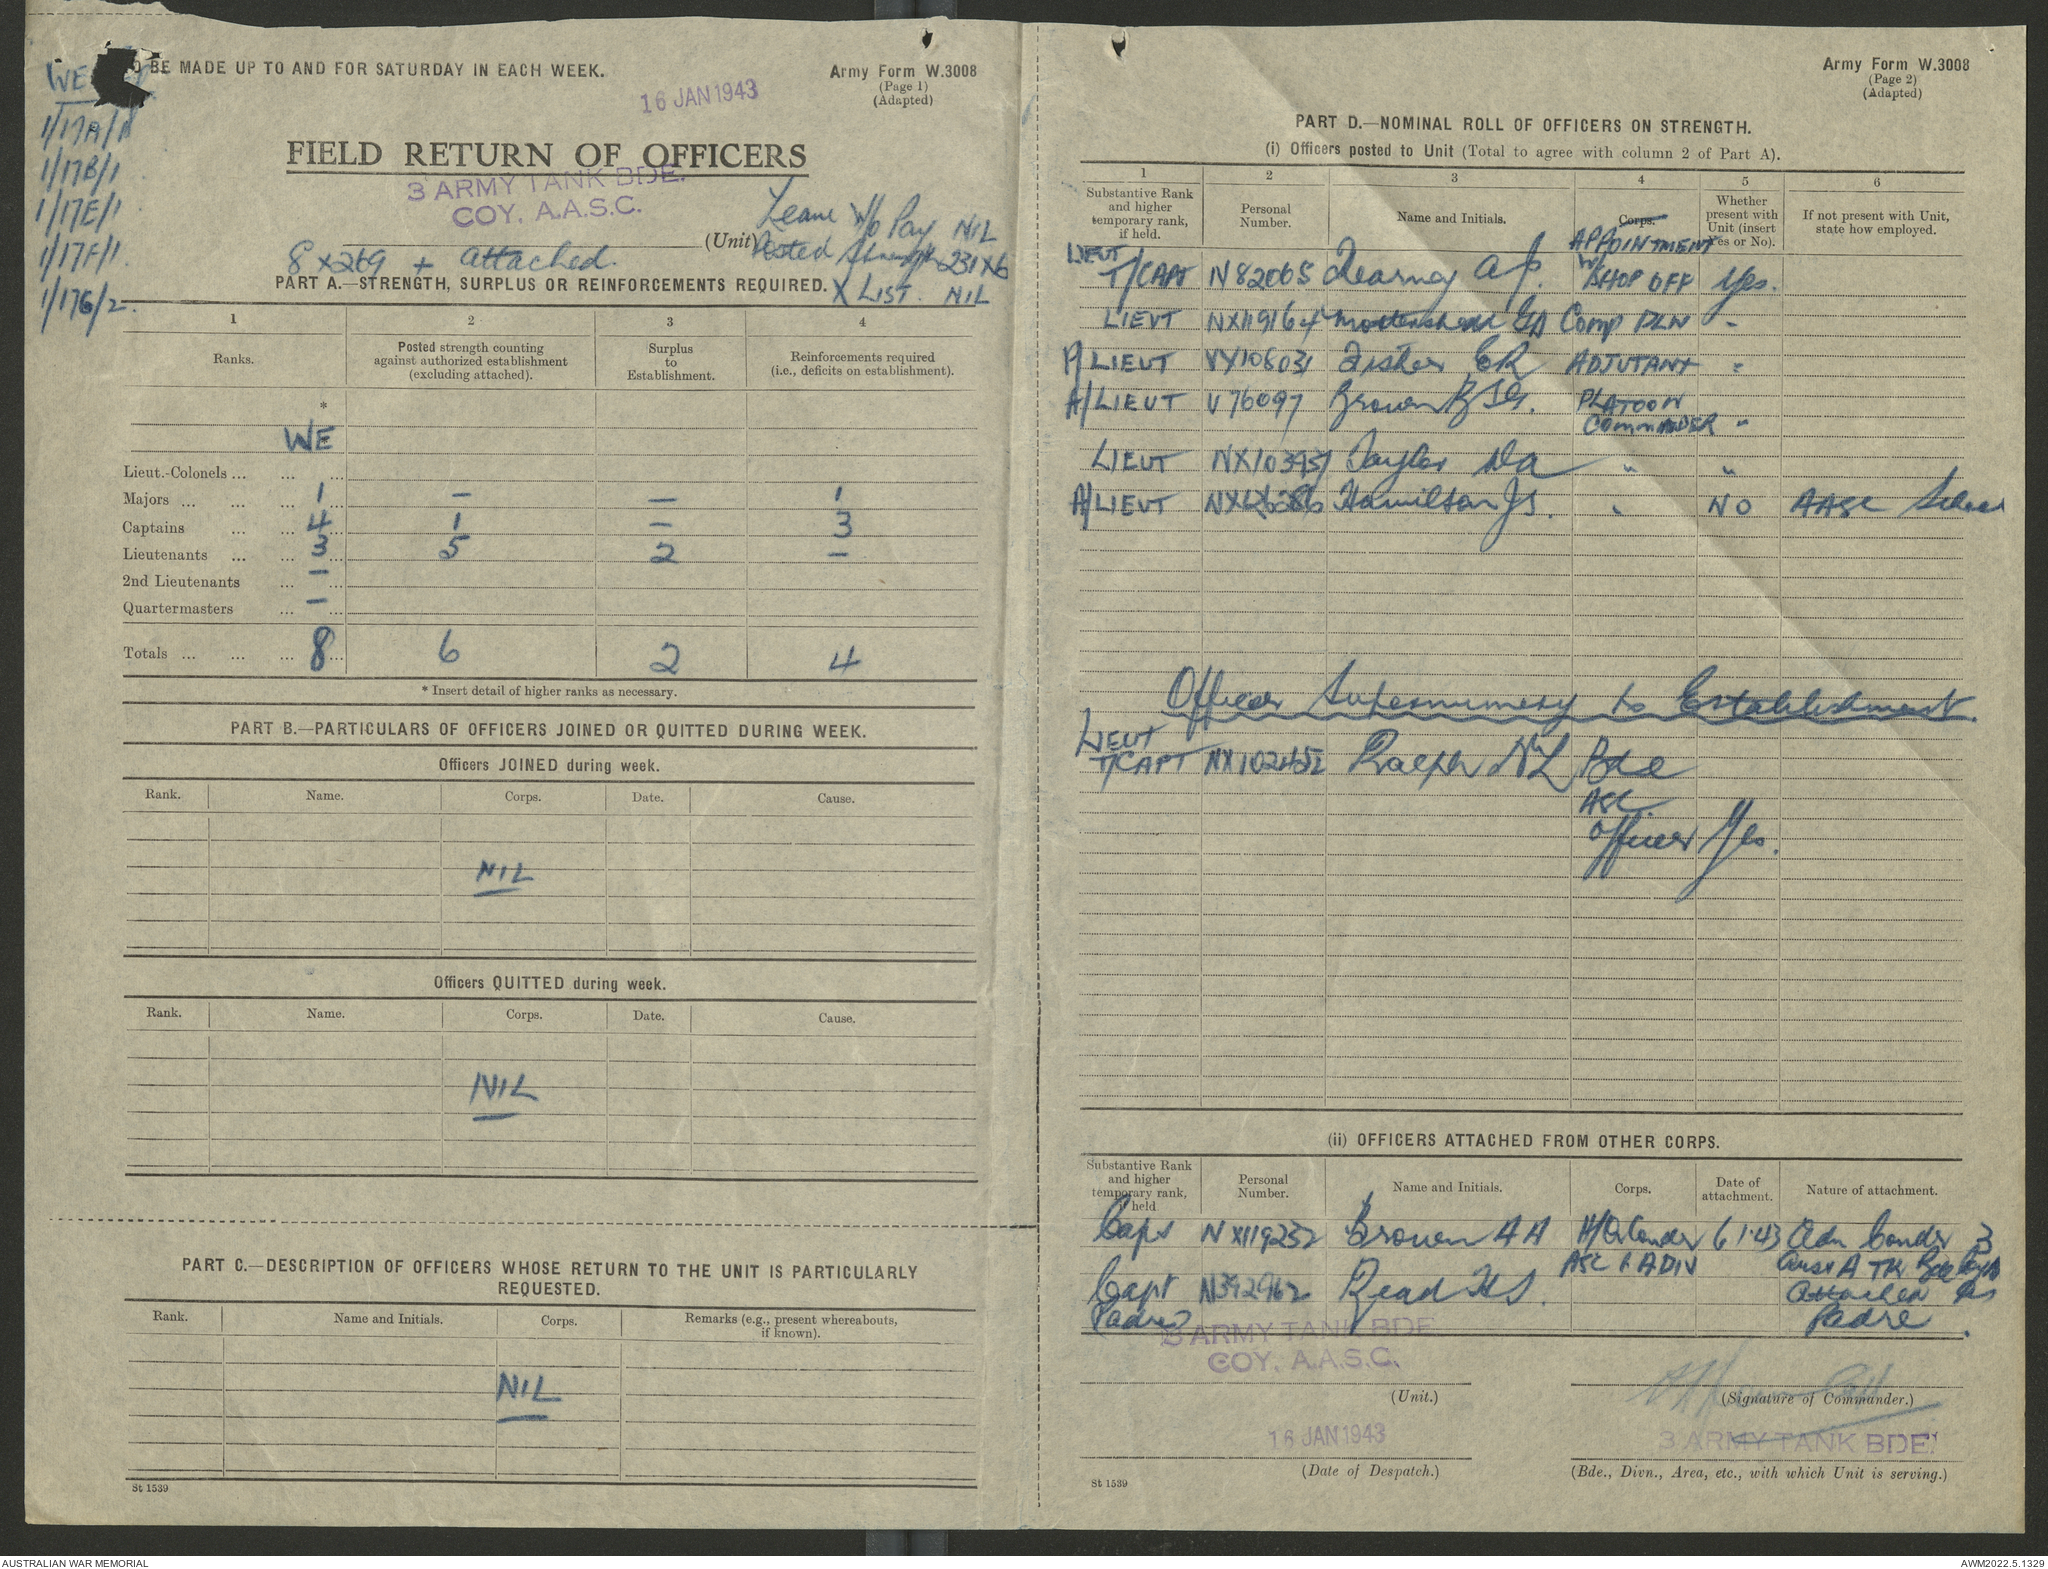 WE
1/17A/1
1/17B/1
1/17E/1
1/17F/1
1/17G/2.
O BE MADE UP TO AND FOR SATURDAY IN EACH WEEK.
16 JAN 1943
Army Form W.3008
(Page 1)
(Adapted)
FIELD RETURN OF OFFICERS
3 ARMY TANK BDE.
COY. A.A.S.C.
(Unit)
Leave W/o Pay NIL
Posted Strength 231 X 6
X LIST. NIL
8 X 269 + attached.
PART A.—STRENGTH, SURPLUS OR REINFORCEMENTS REQUIRED.
1 2 3 4
Ranks.
Posted strength counting against authorized establishment (excluding attached).
Surplus to Establishment.
Reinforcements required (i.e., deficits on establishment).
*
WE
Lieut.-Colonels ... ... ...
Majors ... ... ... 1 — — 1
Captains ... ... 4 1 — 3
Lieutenants ... ... 3 5 2 —
2nd Lieutenants ... —
Quartermasters ... —
Totals ... ... ... 8 6 2 4
* Insert detail of higher ranks as necessary.
PART B.—PARTICULARS OF OFFICERS JOINED OR QUITTED DURING WEEK.
Officers JOINED during week.
Rank. Name. Corps. Date. Cause.
NIL
Officers QUITTED during week.
Rank. Name. Corps. Date. Cause.
NIL
PART C.—DESCRIPTION OF OFFICERS WHOSE RETURN TO THE UNIT IS PARTICULARLY
REQUESTED.
Rank. Name and Initials. Corps. Remarks (e.g., present whereabouts, if known).
NIL
St 1539
Army Form W.3008
(Page 2)
(Adapted)
PART D.—NOMINAL ROLL OF OFFICERS ON STRENGTH.
(i) Officers posted to Unit (Total to agree with column 2 of Part A).
1 2 3 4 5 6
Substantive Rank and higher temporary rank, if held.
Personal Number.
Name and Initials.
Corps.
APPOINTMENT
Whether present with Unit (insert Yes or No).
If not present with Unit, state how employed.
LIEUT
T/CAPT N82065 Kearney A J. W/SHOP OFF Yes.
LIEUT NX119164 Mottershead Comp PLN "
A/LIEUT VX108031 Fisher E R ADJUTANT "
A/LIEUT V76097 Brown PLATOON
COMMANDER "
LIEUT Taylor D A " "
A/LIEUT Hamilton J S. " NO AASC School
Officer Supernumery to Establishment.
LIEUT
T/CAPT NX102452 Ralph N L Bde
ASC
Officer Yes.
(ii) OFFICERS ATTACHED FROM OTHER CORPS.
Substantive Rank and higher temporary rank, held
Personal Number.
Name and Initials.
Corps.
Date of attachment.
Nature of attachment.
Capt NX119252 Brown A A H/Q Comder 6 1.43 Adm Comdr 3
ASC 1 A DIV Aust A TK Bde Coy
Capt N392962 Read H S. Attached as
Padre Padre.
3 ARMY TANK BDE
COY. A.A.S.C.
(Unit.)
(Signature of Commander.)
16 JAN 1943
3 ARMY TANK BDE.
(Date of Despatch.)
(Bde., Divn., Area, etc., with which Unit is serving.)
St 1539
AUSTRALIAN WAR MEMORIAL
AWM2022.5.1329